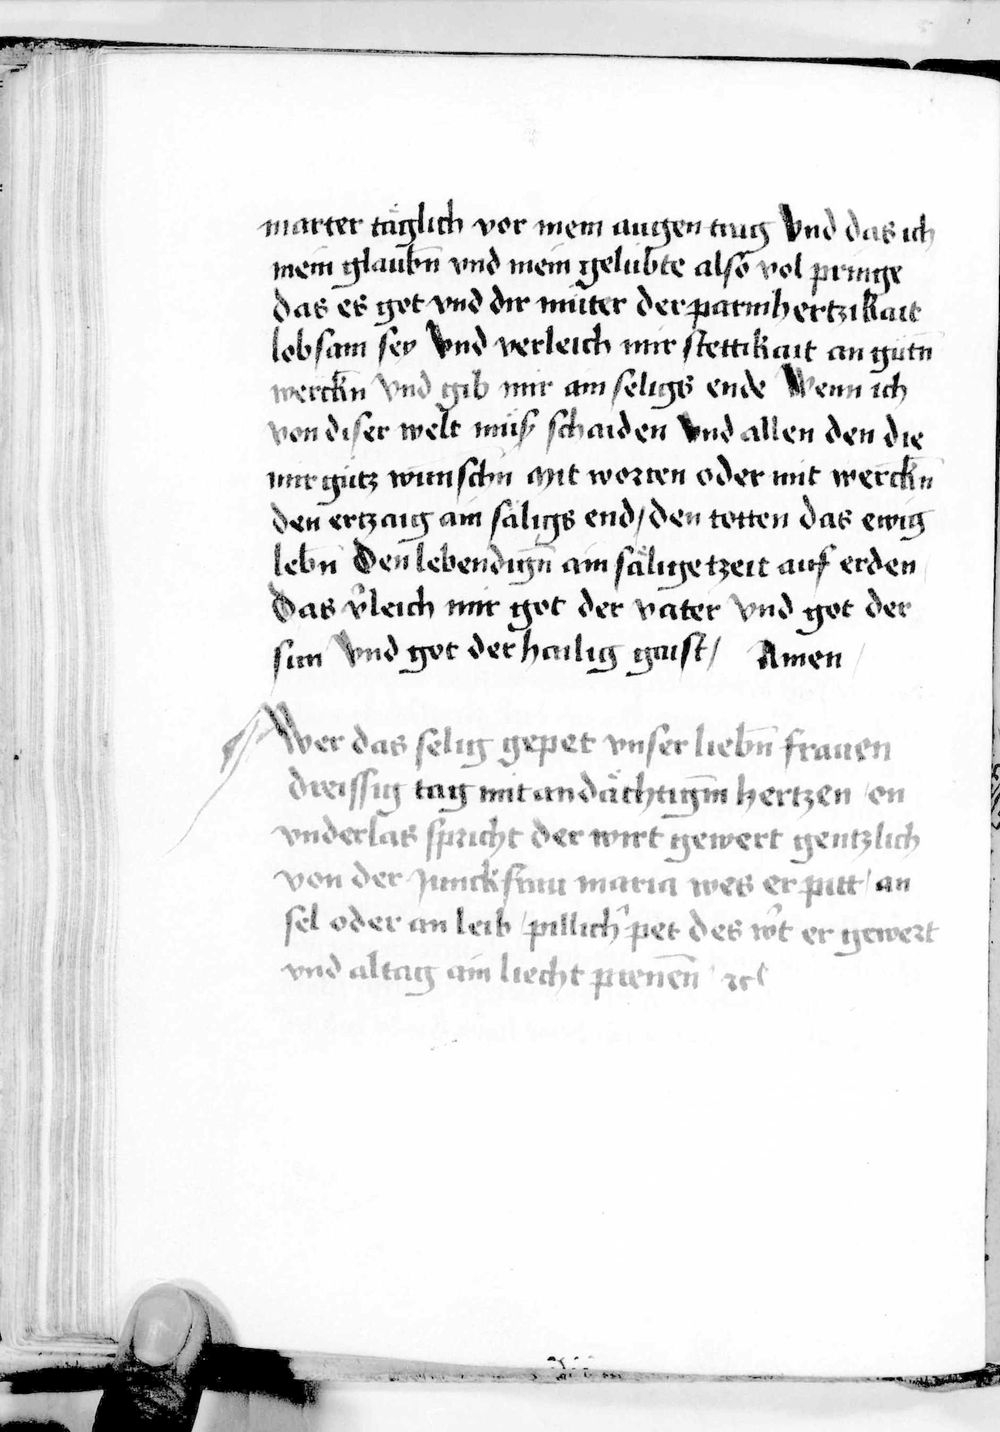 marter täglich vor mein augen trag Vnd das ich
mein glaubn̄ vnd mein gelübte also vol pringe
das es got vnd dir müter der parmhertzikait
lobsam sey Vnd verleich mir stettikait an gůtn̄
werckn̄ Vnd gib mir ain seligs ende Wenn ich
von diser welt můß schaiden Vnd allen den die
mir gůtz wunschn̄ Mit worten oder mit werckn̄
den ertzaig ain säligs end / den totten das ewig
lebn̄ Den lebendign̄ ain sälige tzeit auf erden /
Das v̾leich mir got der vater Vnd got der
sun Vnd got der hailig gaist / Amen /
Wer das selig gepet vnser liebn̄ frawen
dreissig tag mit andächtigm̄ hertzen / on
vnderlas spricht der wirt gewert gentzlich
von der Junckfraw maria wes er pitt / an
sel oder an leib / pillich pet des w̾t er gewert
vnd altag ain liecht prenen̄ ꝛc